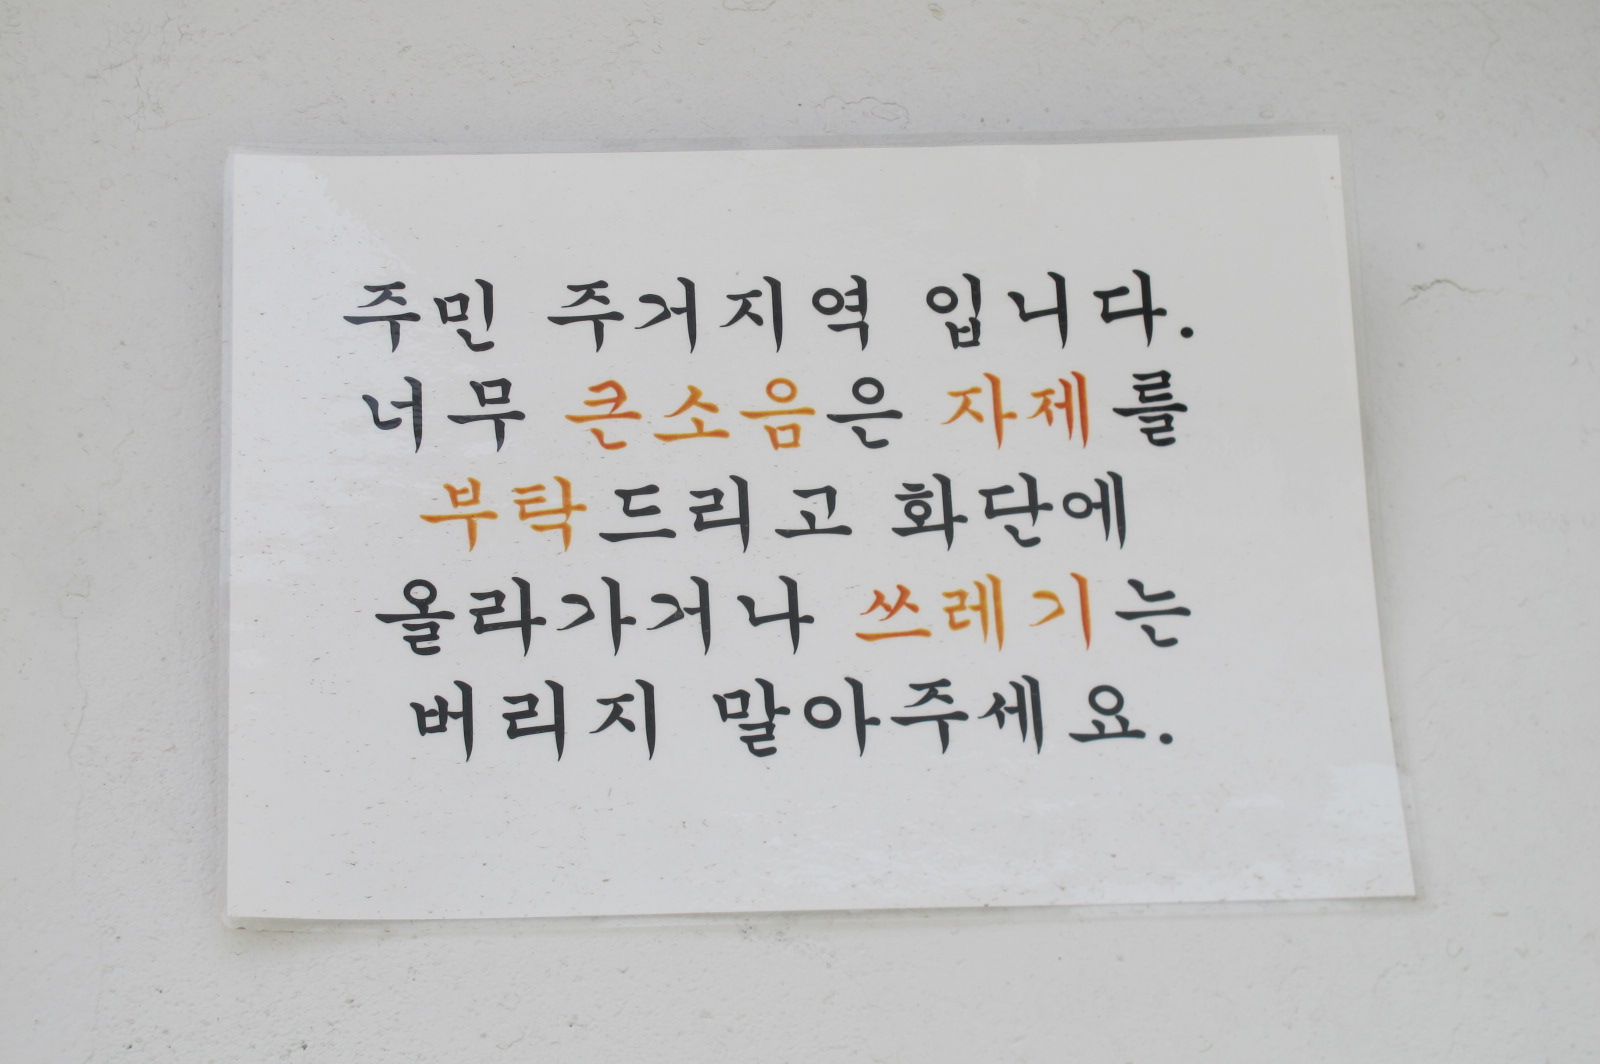 주민 주거지역 입니다.
너무 큰소음은 자제를
부탁드리고 화단에
올라가거나 쓰레기는
버리지 말아주세요.